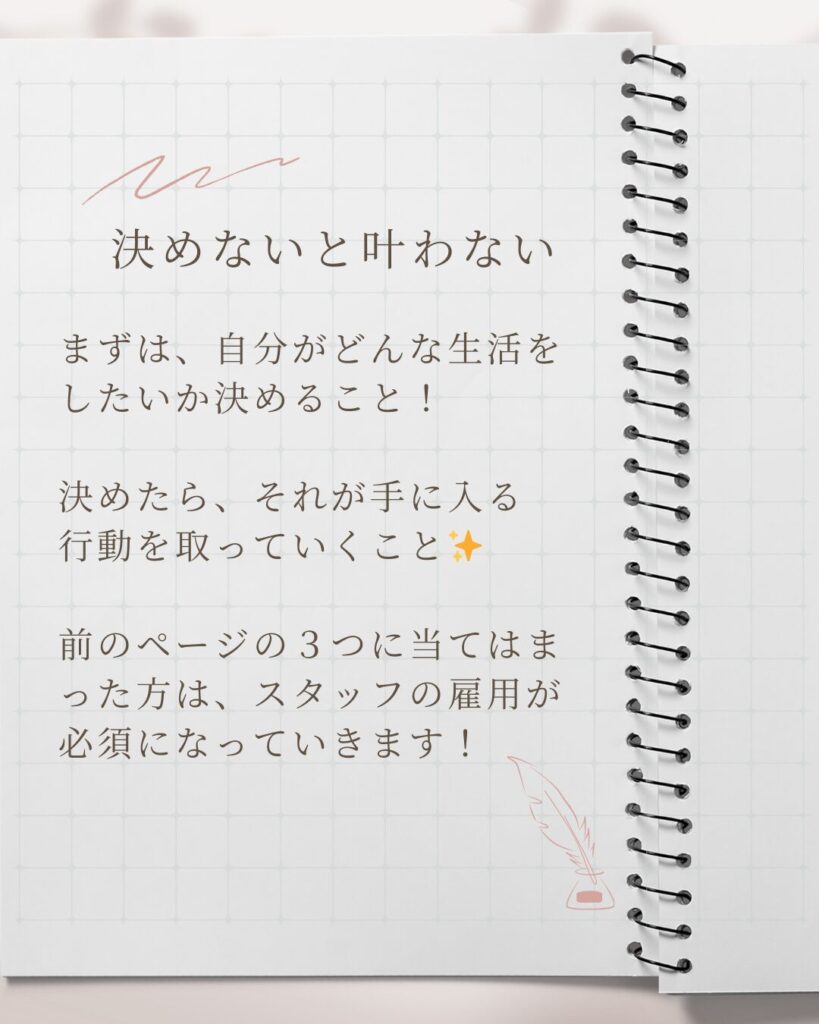 決めないと叶わない
まずは、自分がどんな生活を
したいか決めること！
決めたら、それが手に入る
行動を取っていくこと✨
前のページの３つに当てはま
った方は、スタッフの雇用が
必須になっていきます！